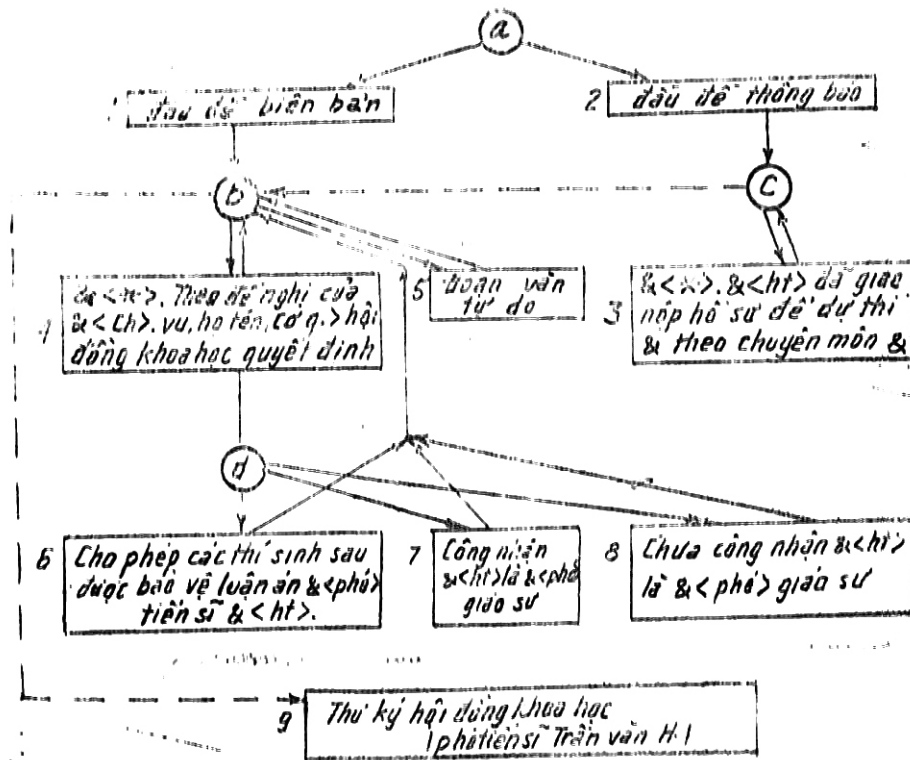 a
1 đầu đề biên bản
2 đầu đề thông báo
b
c
4 &<*>. Theo đề nghị của
&<ch>. vụ, họ tên, cơ q.> hội
đồng khoa học quyết định
5 Đoạn văn
tự do
3 &<*>. &<ht> đã giao
nộp hồ sơ để dự thi
& theo chuyên môn &
d
6 Cho phép các thí sinh sau
được bảo vệ luận án &<phó>
tiến sĩ &<ht>.
7 Công nhận
&<ht> là &<phó
giáo sư
8 Chưa công nhận &<ht>
là &<phó> giáo sư
9 Thư ký hội đồng khoa học
/phó tiến sĩ Trần văn H./